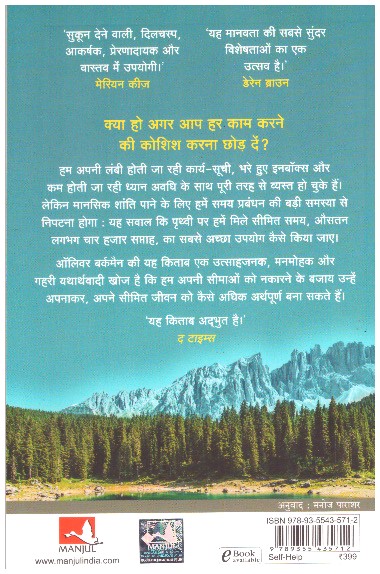 'सुकून देने वाली, दिलचस्प,
आकर्षक, प्रेरणादायक और
वास्तव में उपयोगी।'
मेरियन कीज
'यह मानवता की सबसे सुंदर
विशेषताओं का एक
उत्सव है।'
डेरेन ब्राउन
क्या हो अगर आप हर काम करने
की कोशिश करना छोड़ दें?
हम अपनी लंबी होती जा रही कार्य-सूची, भरे हुए इनबॉक्स और
कम होती जा रही ध्यान अवधि के साथ पूरी तरह से व्यस्त हो चुके हैं।
लेकिन मानसिक शांति पाने के लिए हमें समय प्रबंधन की बड़ी समस्या से
निपटना होगा : यह सवाल कि पृथ्वी पर हमें मिले सीमित समय, औसतन
लगभग चार हजार सप्ताह, का सबसे अच्छा उपयोग कैसे किया जाए।
ऑलिवर बर्कमैन की यह किताब एक उत्साहजनक, मनमोहक और
गहरी यथार्थवादी खोज है कि हम अपनी सीमाओं को नकारने के बजाय उन्हें
अपनाकर, अपने सीमित जीवन को कैसे अधिक अर्थपूर्ण बना सकते हैं।
'यह किताब अद्भुत है।'
द टाइम्स
अनुवाद : मनोज पाराशर
MANJUL
manjulindia.com
MANJUL
eBook
available
ISBN 978-93-5543-571-2
9 789355 435712
Self-Help
₹399